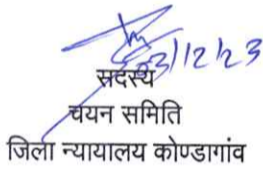 23/12/23
सदस्य
चयन समिति
जिला न्यायालय कोण्डागांव